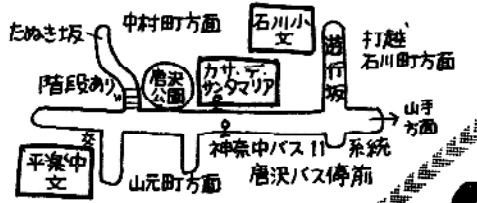 たぬき坂
中村町方面
石川小
文
遊行坂
打越
石川町方面
階段あり
唐沢
公園
カサ・デ・
サンタマリア
山手
方面
交
平楽中
文
山元町方面
神奈中バス11系統
唐沢バス停前